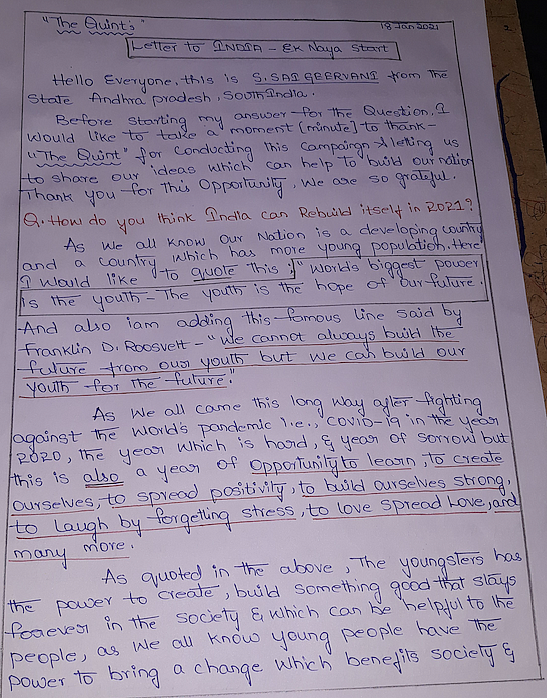 "The Quint's"
18 Jan 2021
Letter to INDIA - EK Naya Start
Hello Everyone, this is S. SAI GEERVANI from The
State Andhra pradesh, South India.
Before starting my answer for the Question, I
would like to take a moment [minute] to thank-
"The Quint" for conducting this campaign & leting us
to share our ideas which can help to build our nation
Thank you for this Opportunity, we are so grateful.
Q. How do you think India can Rebuild itself in 2021?
As we all know our Nation is a developing country
and a country which has more young population. Here
I would like to quote this :]" World's biggest power
is the youth - The youth is the hope of our future.
And also iam adding this famous line said by
Franklin D. Roosvelt - "We cannot always build the
future from our youth but we can build our
youth for the future."
As we all came this long way after fighting
against the world's pandemic i.e., COVID-19 in the year
2020, the year which is hard, & year of sorrow but
this is also a year of opportunity to learn, to create
ourselves, to spread positivity, to build ourselves strong,
to laugh by forgetting stress, to love spread love, and
many more.
As quoted in the above, The youngsters has
the power to create, build something good that stays
forever in the society & which can be helpful to the
people, as we all know young people have the
power to bring a change which benefits society &